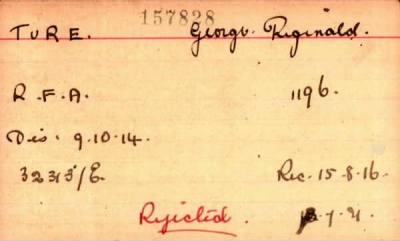 157828
TURE. George Reginald.
R.F.A. 1196.
Dis. 9.10.14.
3231 /E. Rec. 15.8.16.
Rejected. .7.21.